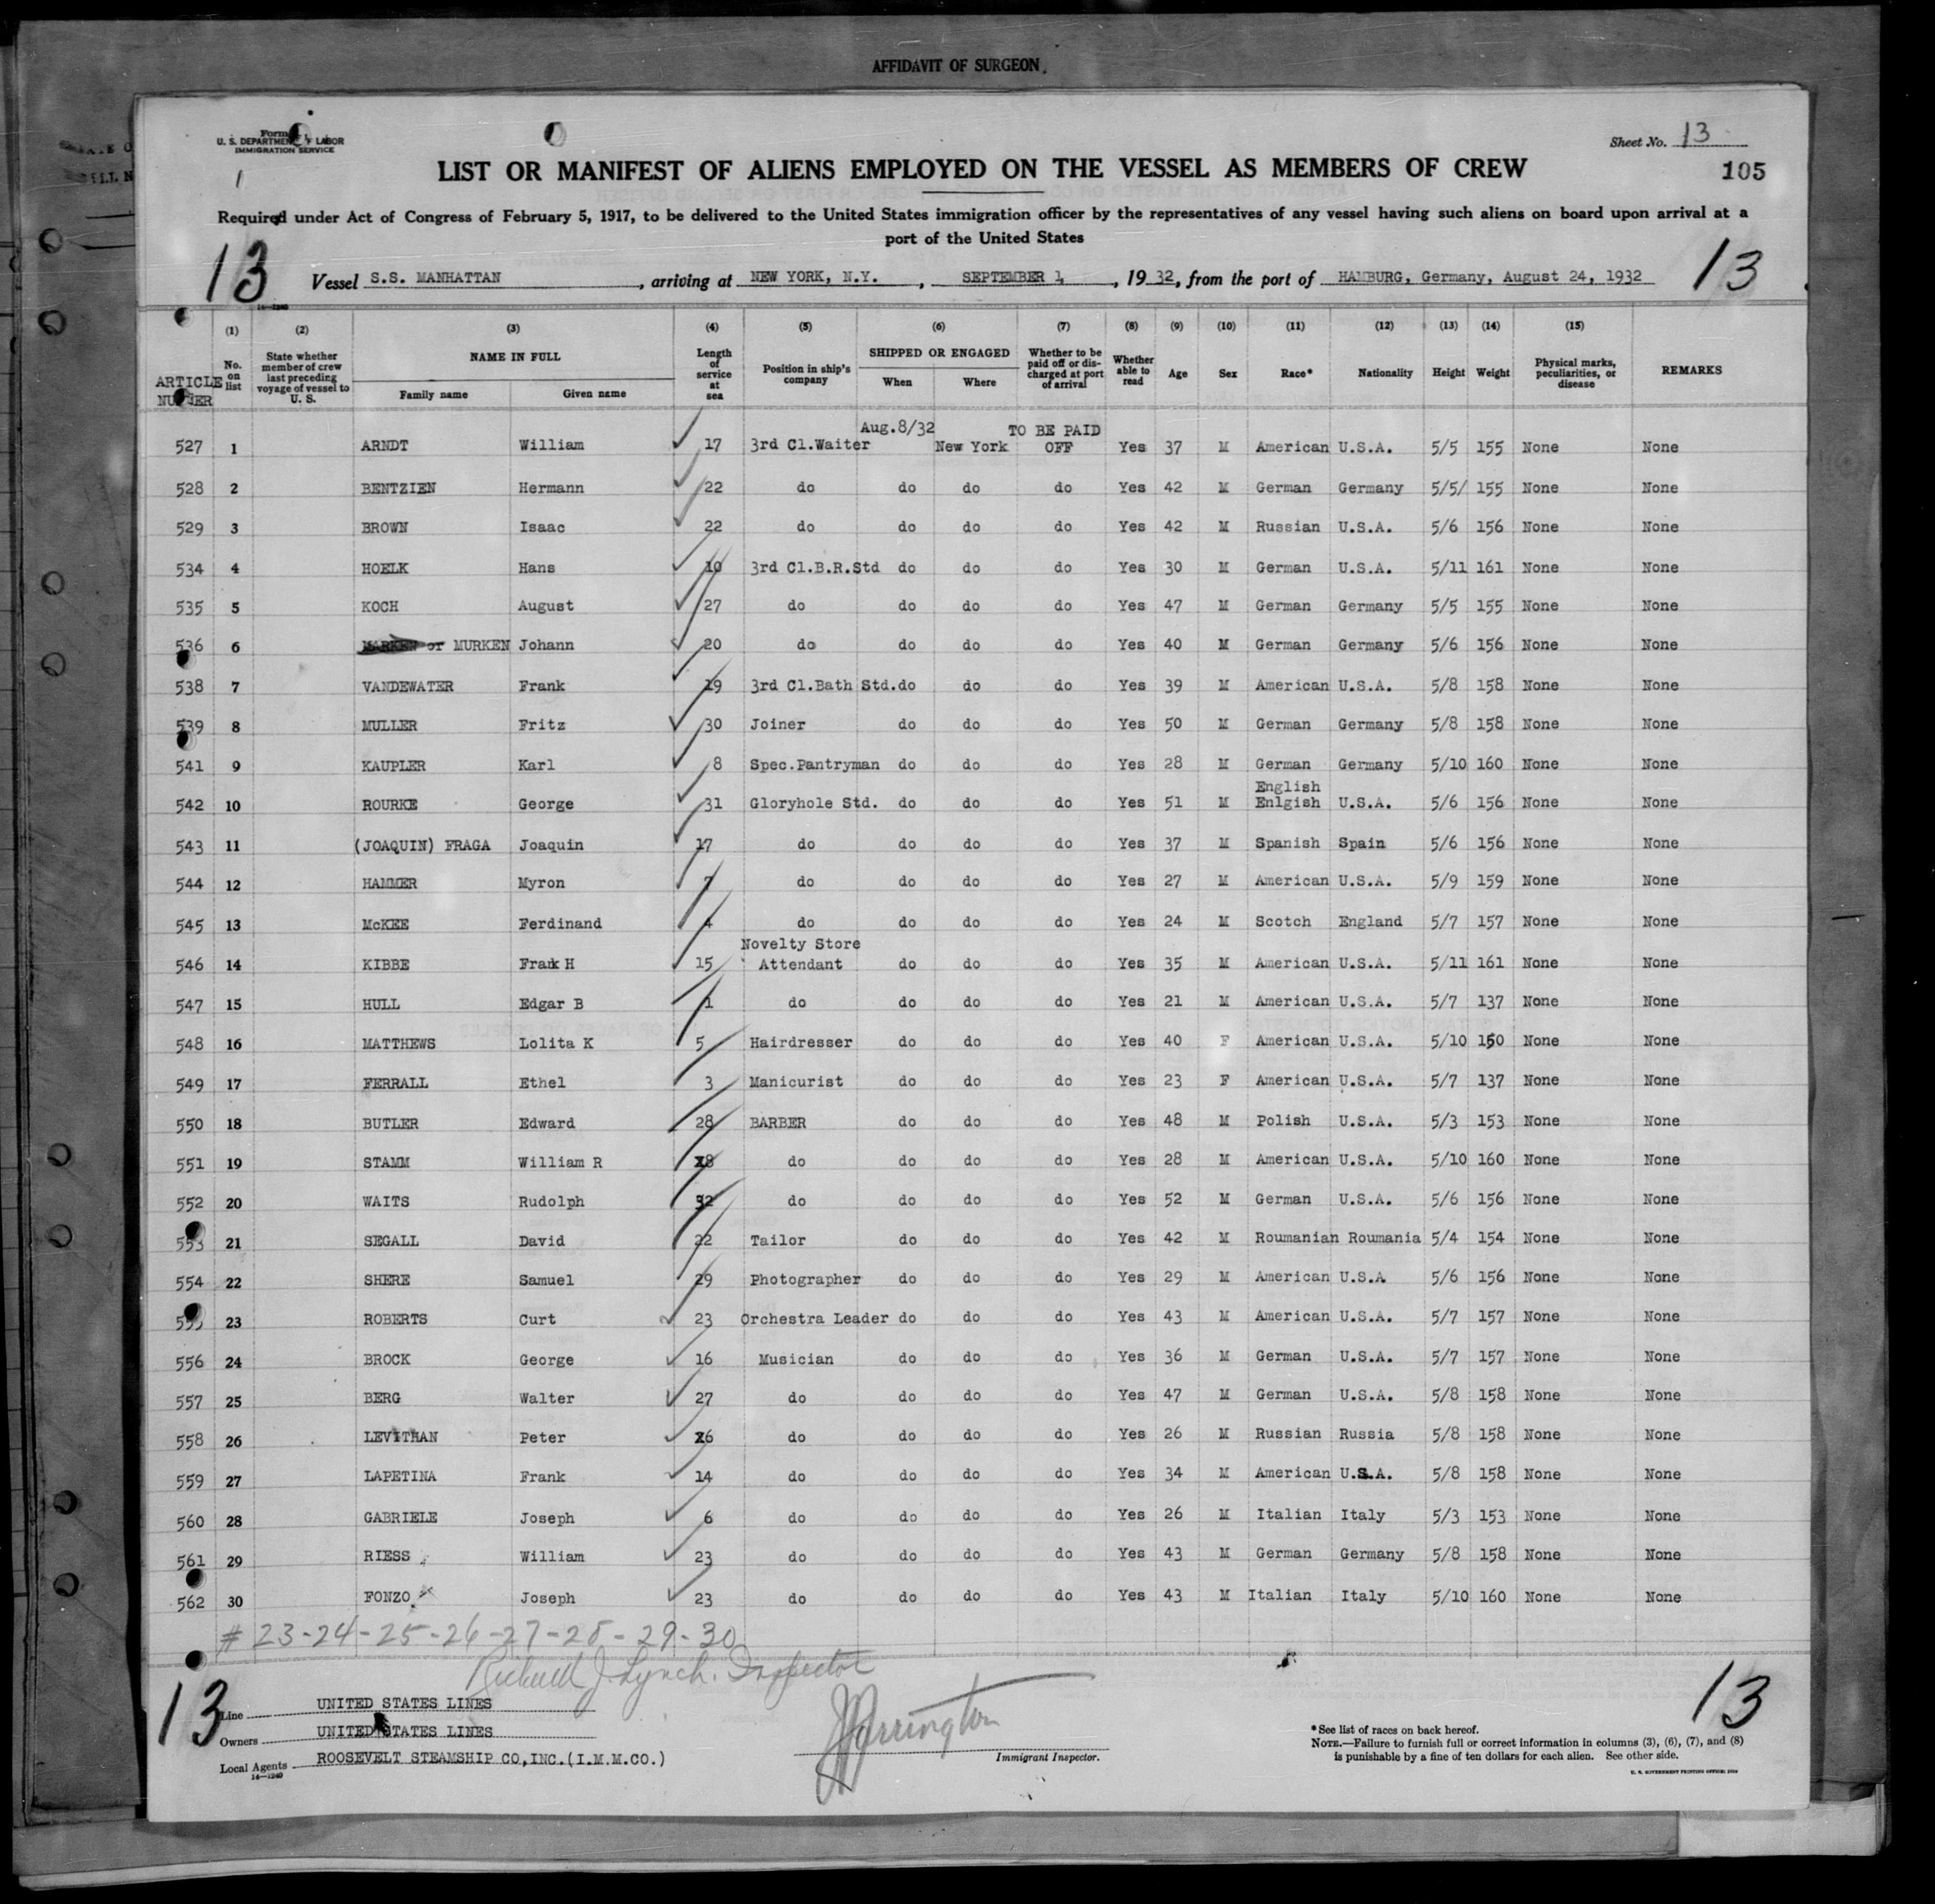 AFFIDAVIT OF SURGEON
Form
U. S. DEPARTMENT OF LABOR
IMMIGRATION SERVICE
1
Sheet No. 13
105
LIST OR MANIFEST OF ALIENS EMPLOYED ON THE VESSEL AS MEMBERS OF CREW
Required under Act of Congress of February 5, 1917, to be delivered to the United States immigration officer by the representatives of any vessel having such aliens on board upon arrival at a
port of the United States
13 Vessel S.S. MANHATTAN, arriving at NEW YORK, N.Y., SEPTEMBER 1, 1932, from the port of HAMBURG, Germany, August 24, 1932 13
(1) (2) (3) (4) (5) (6) (7) (8) (9) (10) (11) (12) (13) (14) (15)
ARTICLE NUMBER No. on list State whether member of crew last preceding voyage of vessel to U. S. NAME IN FULL Length of service at sea Position in ship's company SHIPPED OR ENGAGED Whether to be paid off or discharged at port of arrival Whether able to read Age Sex Race* Nationality Height Weight Physical marks, peculiarities, or disease REMARKS
Family name Given name When Where
Aug.8/32 TO BE PAID
527 1 ARNDT William 17 3rd Cl.Waiter New York OFF Yes 37 M American U.S.A. 5/5 155 None None
528 2 BENTZIEN Hermann 22 do do do do Yes 42 M German Germany 5/5/ 155 None None
529 3 BROWN Isaac 22 do do do do Yes 42 M Russian U.S.A. 5/6 156 None None
534 4 HOELK Hans 10 3rd Cl.B.R.Std do do do Yes 30 M German U.S.A. 5/11 161 None None
535 5 KOCH August 27 do do do do Yes 47 M German Germany 5/5 155 None None
536 6 or MURKEN Johann 20 do do do do Yes 40 M German Germany 5/6 156 None None
538 7 VANDEWATER Frank 19 3rd Cl.Bath Std. do do do Yes 39 M American U.S.A. 5/8 158 None None
539 8 MULLER Fritz 30 Joiner do do do Yes 50 M German Germany 5/8 158 None None
541 9 KAUPLER Karl 8 Spec.Pantryman do do do Yes 28 M German Germany 5/10 160 None None
English
542 10 ROURKE George 31 Gloryhole Std. do do do Yes 51 M Enlgish U.S.A. 5/6 156 None None
543 11 (JOAQUIN) FRAGA Joaquin 17 do do do do Yes 37 M Spanish Spain 5/6 156 None None
544 12 HAMMER Myron 7 do do do do Yes 27 M American U.S.A. 5/9 159 None None
545 13 McKEE Ferdinand 4 do do do do Yes 24 M Scotch England 5/7 157 None None
Novelty Store
546 14 KIBBE Frank H 15 Attendant do do do Yes 35 M American U.S.A. 5/11 161 None None
547 15 HULL Edgar B 1 do do do do Yes 21 M American U.S.A. 5/7 137 None None
548 16 MATTHEWS Lolita K 5 Hairdresser do do do Yes 40 F American U.S.A. 5/10 150 None None
549 17 FERRALL Ethel 3 Manicurist do do do Yes 23 F American U.S.A. 5/7 137 None None
550 18 BUTLER Edward 28 BARBER do do do Yes 48 M Polish U.S.A. 5/3 153 None None
551 19 STAMM William R 8 do do do do Yes 28 M American U.S.A. 5/10 160 None None
552 20 WAITS Rudolph 32 do do do do Yes 52 M German U.S.A. 5/6 156 None None
553 21 SEGALL David 22 Tailor do do do Yes 42 M Roumanian Roumania 5/4 154 None None
554 22 SHERE Samuel 29 Photographer do do do Yes 29 M American U.S.A 5/6 156 None None
555 23 ROBERTS Curt 23 Orchestra Leader do do do Yes 43 M American U.S.A. 5/7 157 None None
556 24 BROCK George 16 Musician do do do Yes 36 M German U.S.A. 5/7 157 None None
557 25 BERG Walter 27 do do do do Yes 47 M German U.S.A. 5/8 158 None None
558 26 LEVITHAN Peter 6 do do do do Yes 26 M Russian Russia 5/8 158 None None
559 27 LAPETINA Frank 14 do do do do Yes 34 M American U.S.A. 5/8 158 None None
560 28 GABRIELE Joseph 6 do do do do Yes 26 M Italian Italy 5/3 153 None None
561 29 RIESS William 23 do do do do Yes 43 M German Germany 5/8 158 None None
562 30 FONZO Joseph 23 do do do do Yes 43 M Italian Italy 5/10 160 None None
# 23-24-25-26-27-28-29-30
Richard J. Lynch. Inspector
13 Line UNITED STATES LINES 13
Owners UNITED STATES LINES
Local Agents ROOSEVELT STEAMSHIP CO,INC.(I.M.M.CO.)
14-1240
Immigrant Inspector.
*See list of races on back hereof.
NOTE.—Failure to furnish full or correct information in columns (3), (6), (7), and (8)
is punishable by a fine of ten dollars for each alien. See other side.